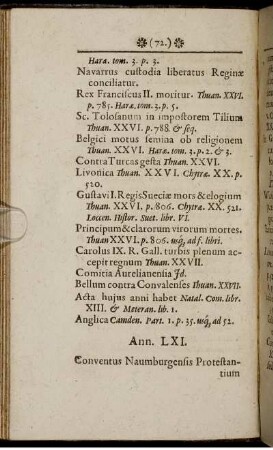 ❋ (72.) ❋
Hara. tom. 3. p. 3.
Navarrus custodia liberatus Reginæ
conciliatur.
Rex Franciscus II. moritur. Thuan. XXVI.
p. 785. Hara. tom. 3. p. 5.
Sc. Tolosanum in impostorem Tilium
Thuan. XXVI. p. 788. & seq.
Belgici motus semina ob religionem
Thuan. XXVI. Hara. tom. 3. p. 2. & 3.
Contra Turcas gesta Thuan. XXVI.
Livonica Thuan. XXVI. Chytra. XX. p.
520.
Gustavi I. Regis Sueciæ mors & elogium
Thuan. XXVI. p. 806. Chytra. XX. 521.
Loccen. Histor. Suet. libr. VI.
Principum & clarorum virorum mortes.
Thuan XXVI. p. 806. usq; ad f. libri.
Carolus IX. R. Gall. turbis plenum ac-
cepit regnum Thuan. XXVII.
Comitia Aurelianensia Id.
Bellum contra Convalenses Thuan. XXVII.
Acta hujus anni habet Natal. Com. libr.
XIII. & Materan. lib. 1.
Anglica Camden. Part. 1. p. 35. usq; ad 52.
Ann. LXI.
Conventus Naumburgensis Protestan-
tium